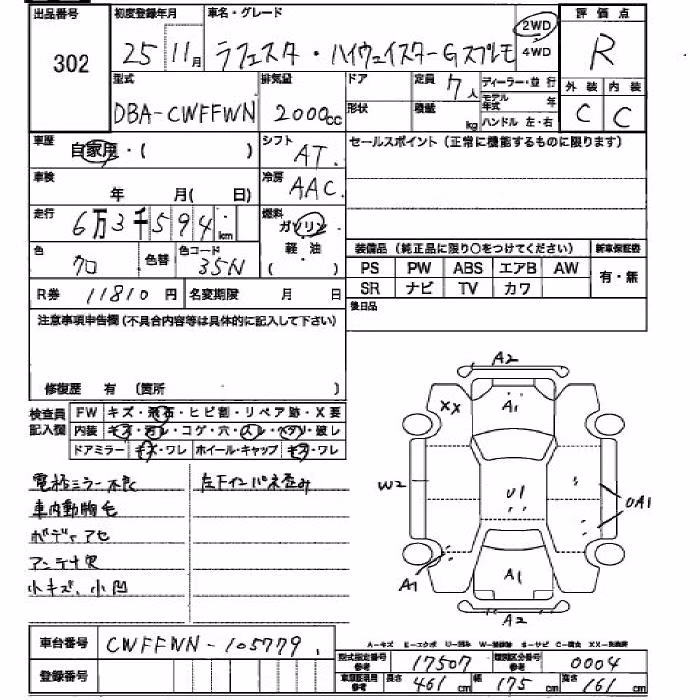 出品番号 初度登録年月 車名・グレード 2WD 評価点
302 25 11月 ラフェスタ・ハイウェイスターGスプレモ 4WD R
型式 排気量 ドア 定員 7人 ディーラー・並行 外装 内装
DBA-CWFFWN 2000cc 形状 積載 kg モデル年式 年 ハンドル 左・右 C C
車歴 自家用・( ) シフト AT. セールスポイント(正常に機能するものに限ります)
車検 年 月(日) 冷房 AAC.
走行 6万3千594km 燃料 ガソリン
軽・油
( )
色 クロ 色替 色コード 35N 装備品(純正品に限り○をつけてください) 新車保証書
PS PW ABS エアB AW 有・無
R券 11810円 名変期限 月 日 SR ナビ TV カワ
注意事項申告欄(不具合内容等は具体的に記入して下さい) 後日品
修復歴 有 (箇所 )
検査員記入欄 FW キズ・飛石・ヒビ割・リペア跡・X要
内装 キズ・汚レ・コゲ・穴・スレ・ヘタリ・破レ
ドアミラー キズ・ワレ ホイール・キャップ キズ・ワレ
電格ミラー不良 左下インパネ歪み
車内動物毛
ボディアセ
アンテナ欠
小キズ、小凹
A2
XX A1
W2 U1 UA1
A1 A1
A2
車台番号 CWFFWN-105779
A-キズ E-エクボ
登録番号
型式指定番号 参考 17507 類別区分番号 参考 0004
長さ 461cm 幅 175cm 高さ 161cm